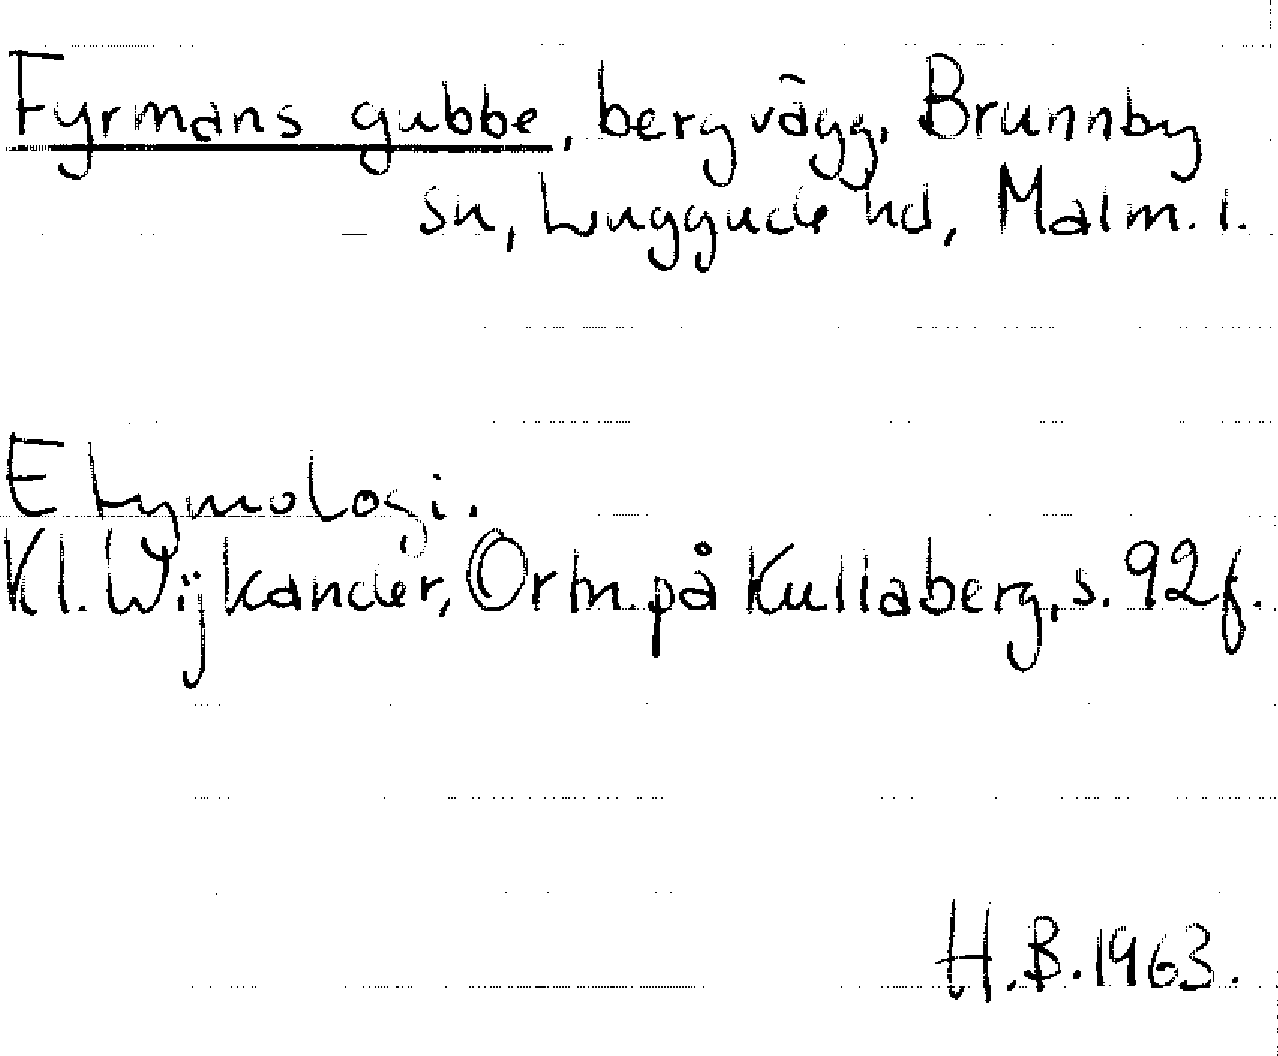 Fyrmans gubbe, bergvägg, Brunnby
sn, Luggude hd, Malm. l.
Etymologi.
Kl. Wijkander, Ortn på Kullaberg, s. 92f.
H.B. 1963.